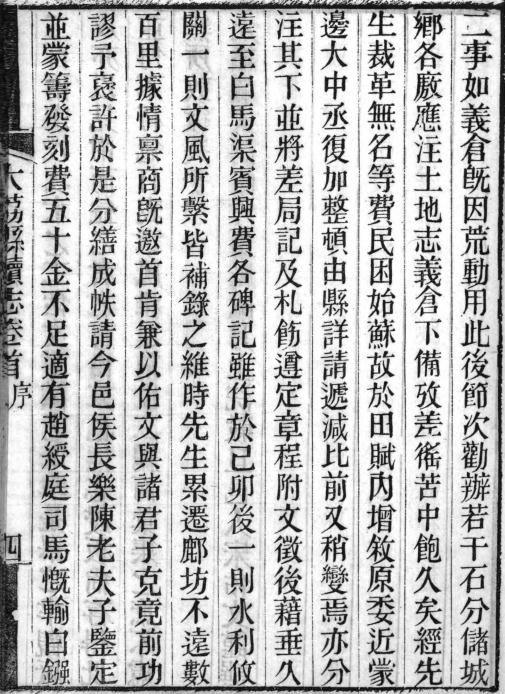 二事如義倉旣因荒動用此後節次勸辦若干石分儲城
鄕各厫應注土地志義倉下備攷差徭苦中飽久矣經先
生裁革無名等費民困始蘇故於田賦內增敘原委近蒙
邊大中丞復加整頓由縣詳請遞減比前又稍變焉亦分
注其下並將差局記及札飭遵定章程附文徵後藉垂久
遠至白馬渠賓興費各碑記雖作於己卯後一則水利攸
關一則文風所繫皆補錄之維時先生累遷鄜坊不遠數
百里據情禀商旣邀首肯兼以佑文與諸君子克竟前功
謬予褒許於是分繕成帙請今邑侯長樂陳老夫子鑒定
並蒙籌發刻費五十金不足適有趙綬庭司馬慨輸白鏹
大荔縣續志卷首 序 四